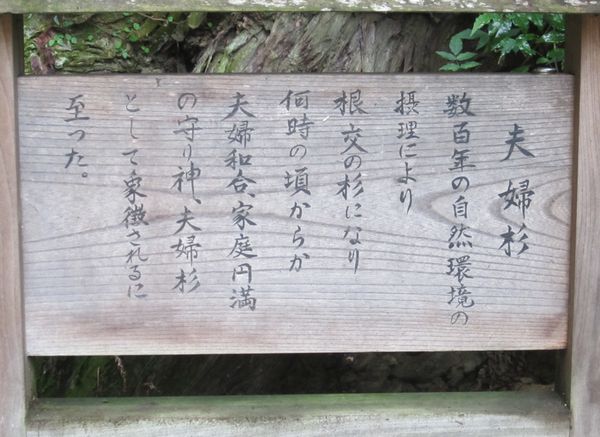 夫婦杉
数百年の自然環境の
摂理により
根交の杉になり
何時の頃からか
夫婦和合、家庭円満
の守り神、夫婦杉
として象徴されるに
至った。